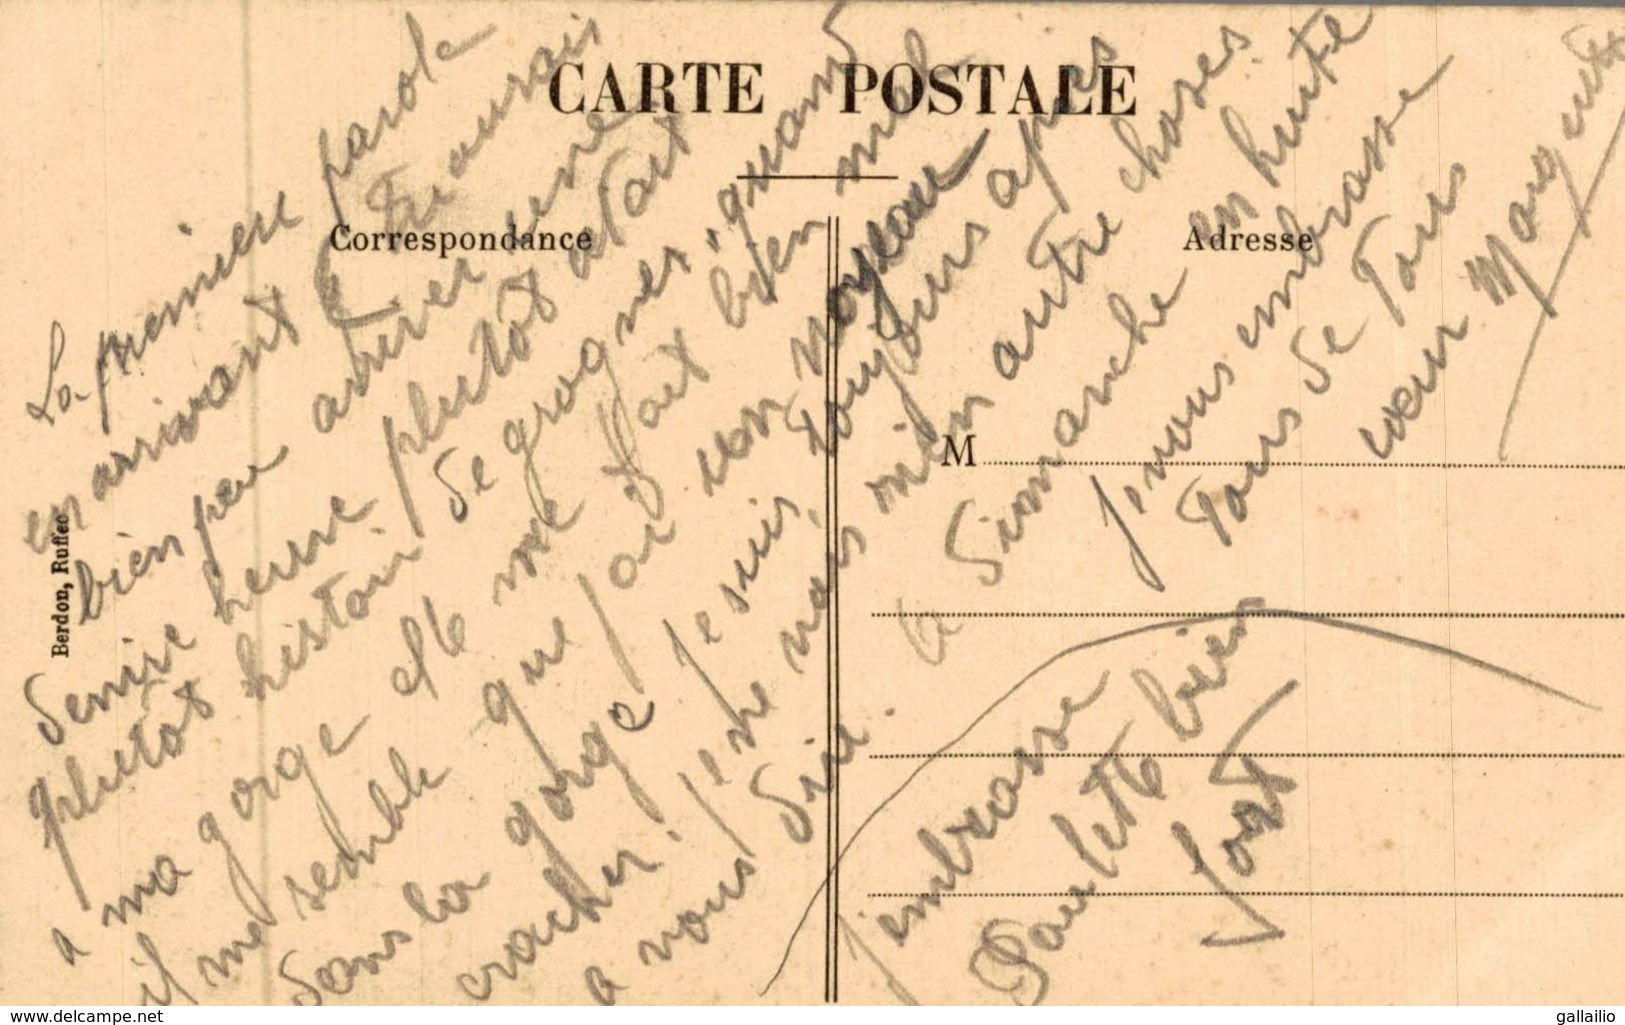 CARTE POSTALE
Correspondance
Adresse
M
Berdon, Ruffec
La premiere parole
en arrivant
bien peu arriver une
demie heure plutôt
plutôt histoir de grogner quand
a ma gorge elle me fait bien mal
il me semble que j'ai un noyeau
dans la gorge je suis toujours apres
cracher. Je ne vais rien autre choses
a vous dire.
a dimanche en huite
J'vous embrasse
Tous de Tous
cœur Marguerite
J'embrasse
Paulette bien
fort
delcampe.net
gallailio